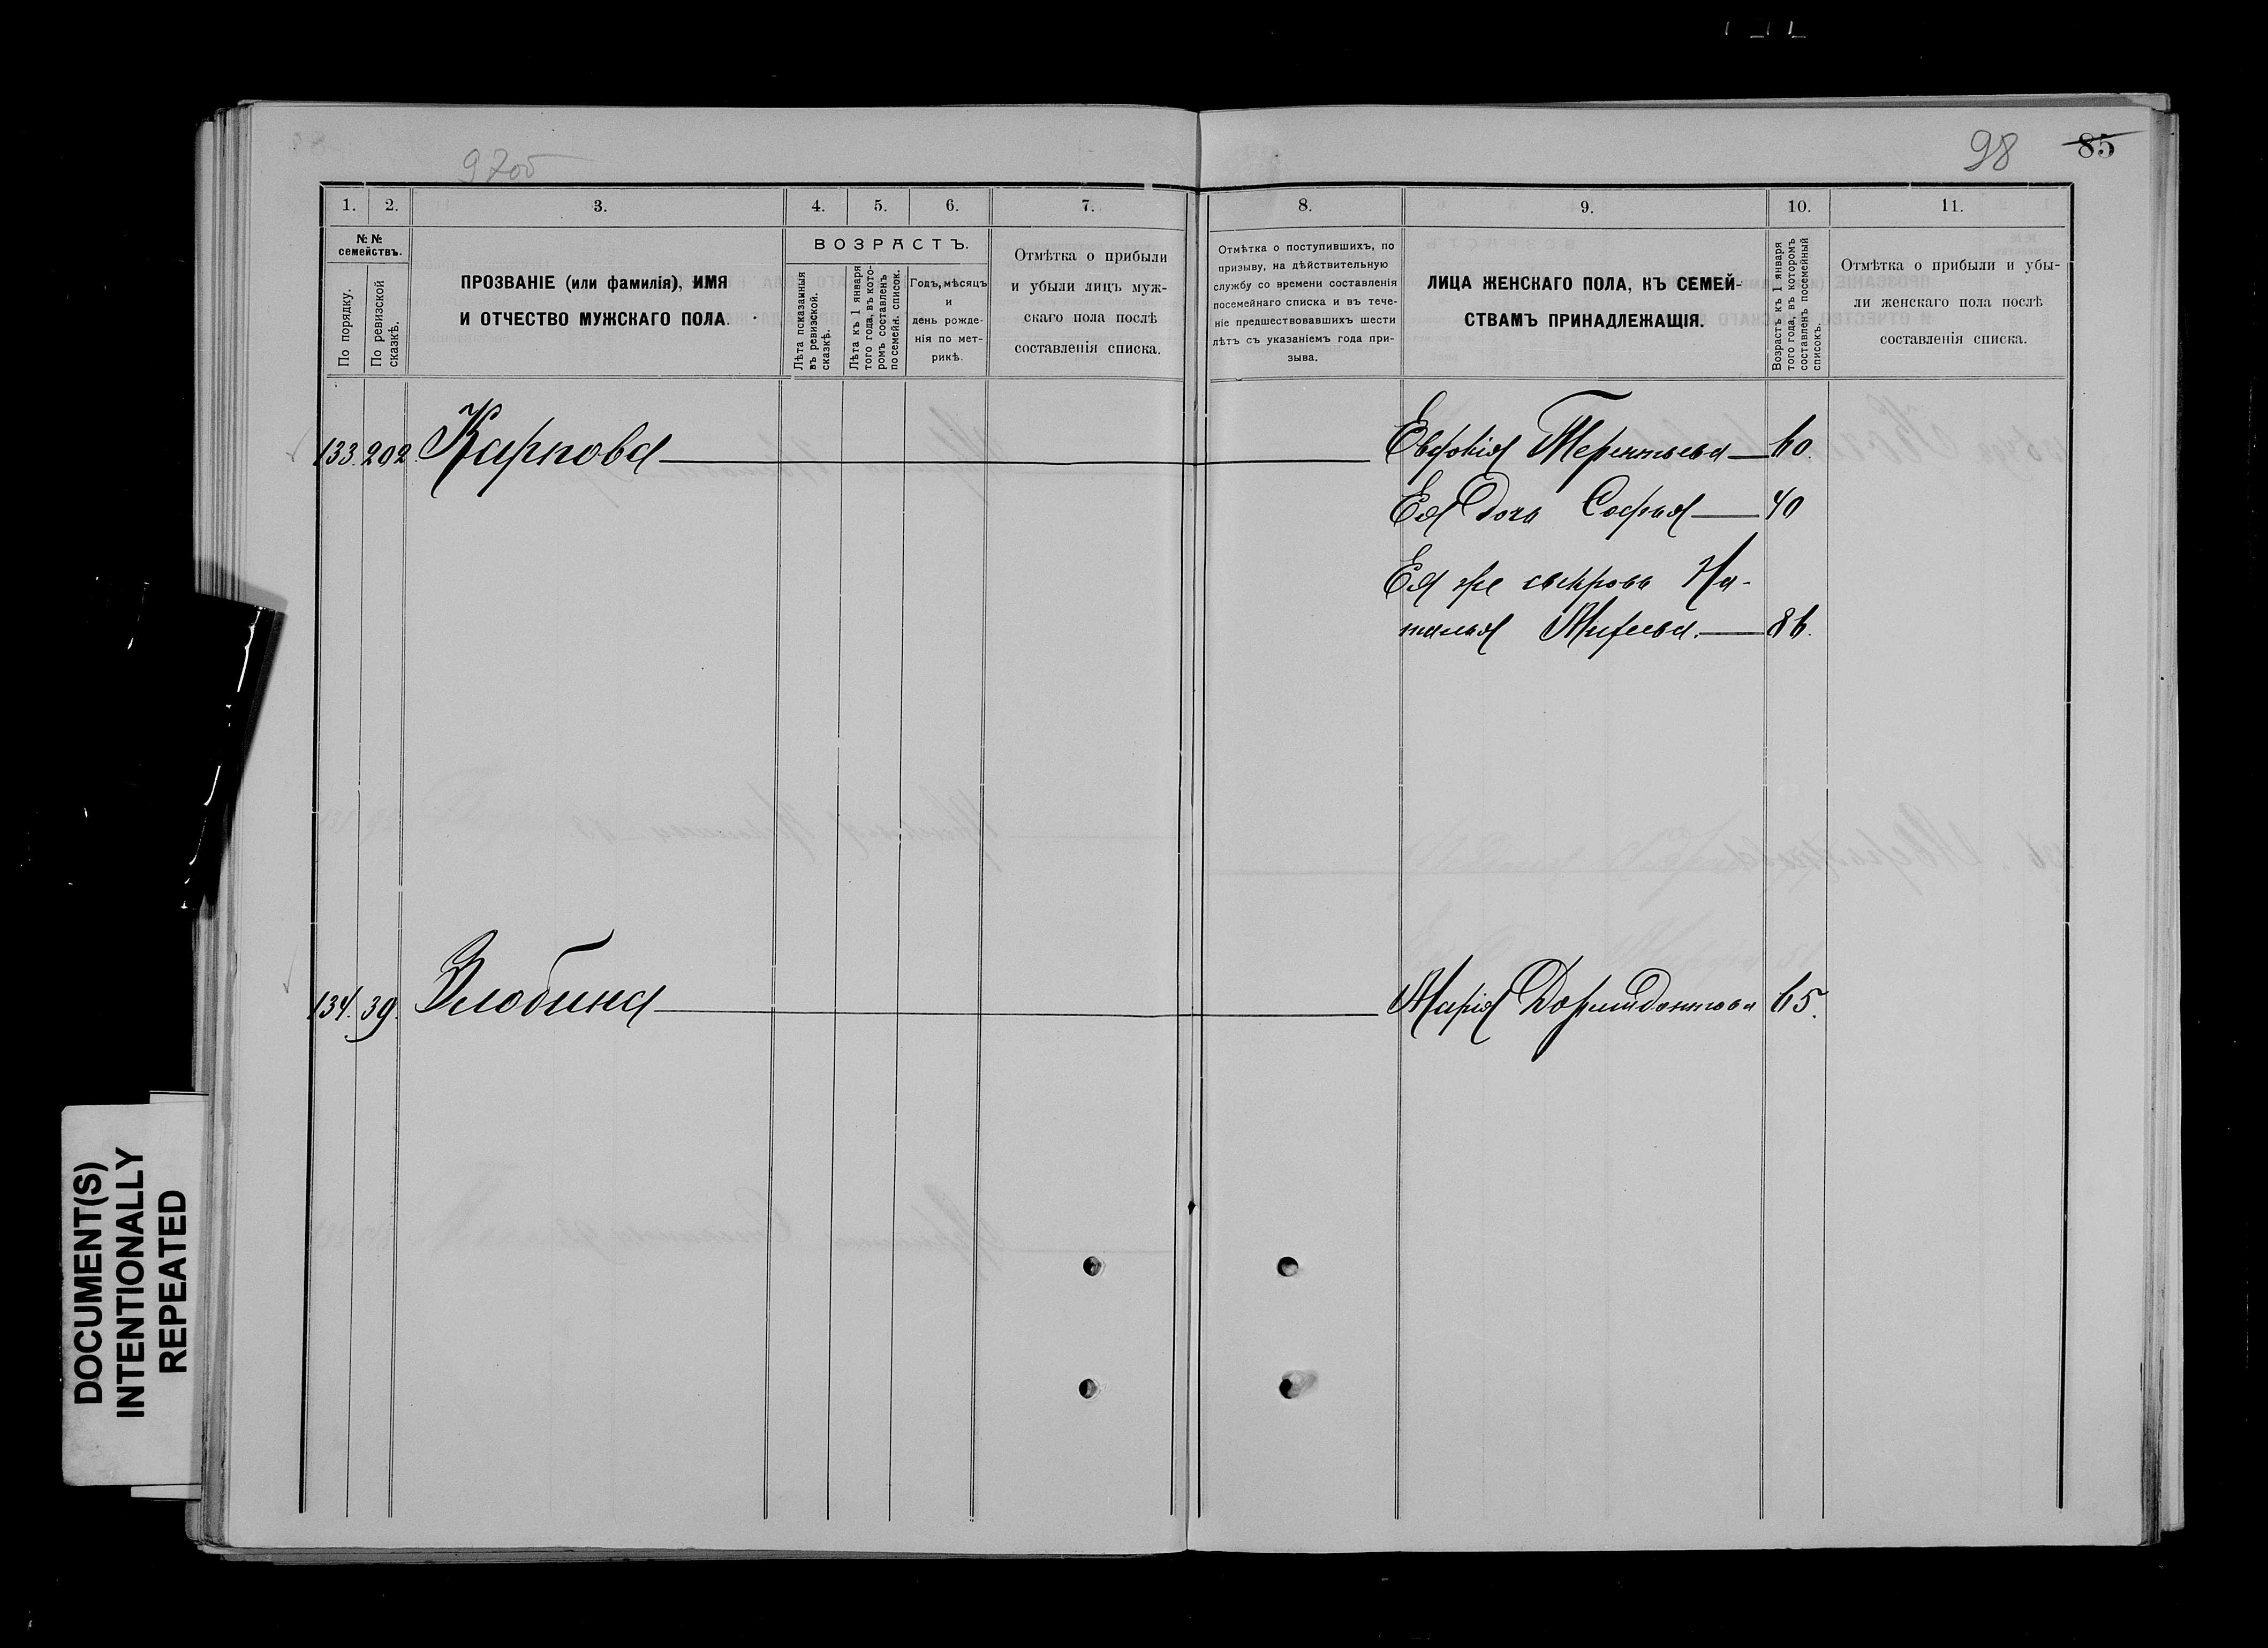 97об
98 85
1. 2. 3. 4. 5. 6. 7. 8. 9. 10. 11.
№ №
семействъ.
По порядку.
По ревизской
сказкѣ.
ПРОЗВАНІЕ (или фамилія), ИМЯ
И ОТЧЕСТВО МУЖСКАГО ПОЛА.
ВОЗРАСТЪ.
Лѣта показанныя
въ ревизской
сказкѣ.
Лѣта къ 1 января
того года, въ кото-
ромъ составленъ
посемейн. списокъ.
Годъ, мѣсяцъ
и
день рожде-
нія по мет-
рикѣ.
Отмѣтка о прибыли
и убыли лицъ муж-
скаго пола послѣ
составленія списка.
Отмѣтка о поступившихъ, по
призыву, на дѣйствительную
службу со времени составленія
посемейнаго списка и въ тече-
ніе предшествовавшихъ шести
лѣтъ съ указаніемъ года при-
зыва.
ЛИЦА ЖЕНСКАГО ПОЛА, КЪ СЕМЕЙ-
СТВАМЪ ПРИНАДЛЕЖАЩІЯ.
Возрастъ къ 1 января
того года, въ которомъ
составленъ посемейный
списокъ.
Отмѣтка о прибыли и убы-
ли женскаго пола послѣ
составленія списка.
133. 202. Карпова Евфовія Терентьева 60.
Ея дочь Софья 40
Ея же свекровь На-
талья Михеева. 86.
134. 39. Злобина Марія Дормидонтова 65.
DOCUMENT(S)
INTENTIONALLY
REPEATED